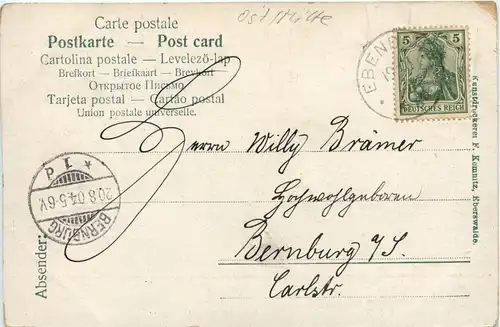 Carte postale
Postkarte — Post card
Cartolina postale — Levelező-lap
Brefkort — Briefkaart — Brevkort
Открытое Письмо
Tarjeta postal — Cartão postal
Union postale universelle.
5 5
DEUTSCHES REICH
EBEN
19
Herrn Willy Brämer
Hochwohlgeboren
Bernburg a/S.
Carlstr.
BERNBURG
20.8.04.5-6V.
Absender:
Kunstdruckerei F. Kemnitz, Eberswalde.